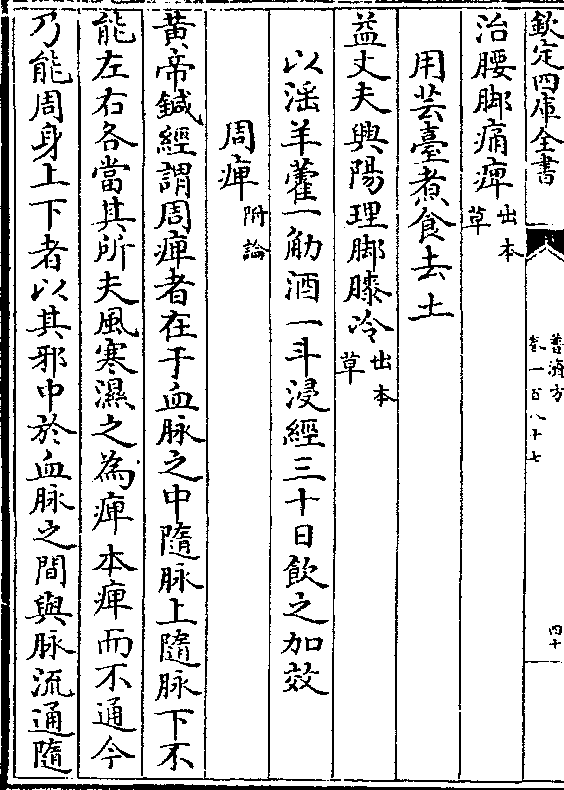 欽定四庫全書
普濟方
卷一百八十七
四十
治腰脚痛痺出本草
用芸臺煮食去土
益丈夫興陽理脚膝冷出本草
以淫羊藿一觔酒一斗浸經三十日飲之加效
周痺附論
黄帝鍼經謂周痺者在于血脉之中隨脉上隨脉下不
能左右各當其所夫風寒濕之為痺本痺而不通今
乃能周身上下者以其邪中於血脉之間與脉流通隨